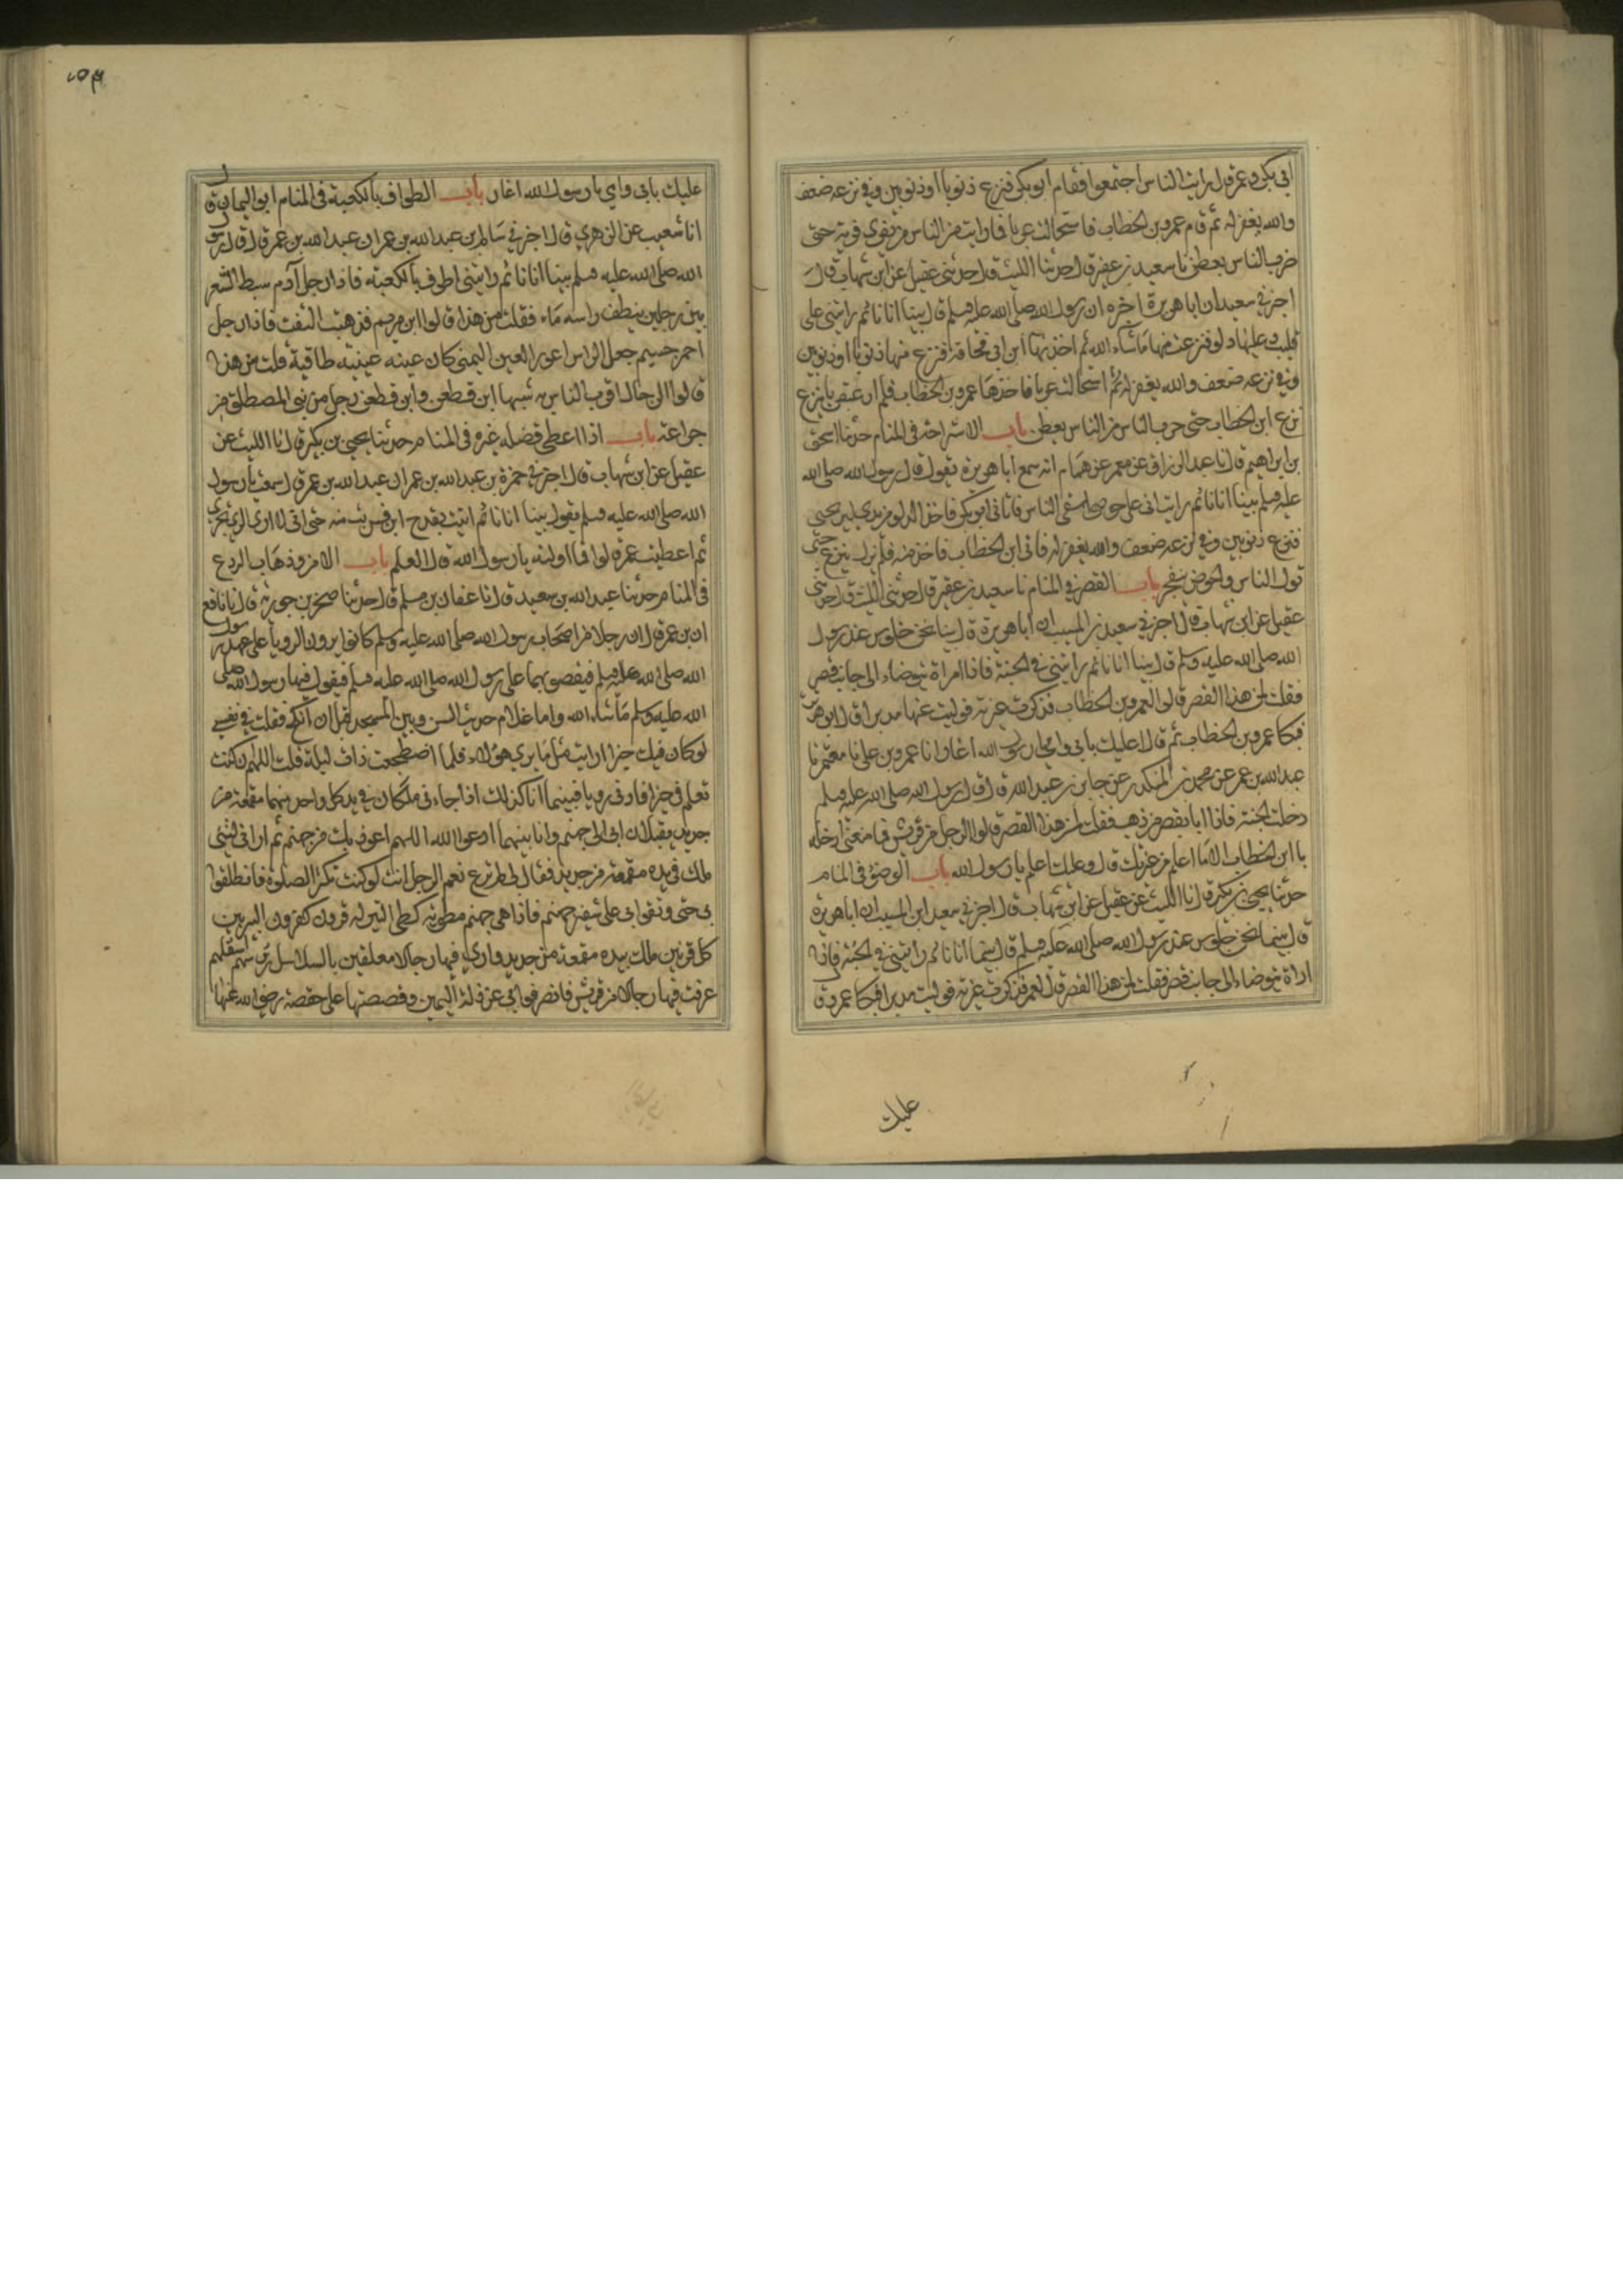 ابي بكر وعمر قال رايت الناس اجتمعوا فقام ابو بكر فنزع ذنوبا او ذنوبين وفي نزعه ضعف
والله يغفر له ثم قام عمر بن الخطاب فاستحالت غربا فما رايت من الناس من يفري فريه حتى
ضرب الناس بعطن نا سعيد بن عفير قال حدثنا الليث قال حدثني عقيل عن ابن شهاب قال
اخبرني سعيد ان ابا هريرة اخبره ان رسول الله صلى الله عليه وسلم قال بينا انا نائم رايتني على
قليب وعليها دلو فنزعت منها ما شاء الله ثم اخذها ابن ابي قحافة فنزع منها ذنوبا او ذنوبين
وفي نزعه ضعف والله يغفر له ثم استحالت غربا فاخذها عمر بن الخطاب فلم ار عبقريا ينزع
نزع ابن الخطاب حتى ضرب الناس بعطن باب الاستراحة في المنام حدثنا اسحق
بن ابراهيم قال نا عبد الرزاق عن معمر عن همام انه سمع ابا هريرة يقول قال رسول الله صلى الله
عليه وسلم بينا انا نائم رايت اني على حوض اسقي الناس فاتاني ابو بكر فاخذ الدلو من يدي ليريحني
فنزع ذنوبين وفي نزعه ضعف والله يغفر له فاتى ابن الخطاب فاخذ منه فلم يزل ينزع حتى
تولى الناس والحوض يتفجر باب القصر في المنام نا سعيد بن عفير قال حدثني الليث قال حدثني
عقيل عن ابن شهاب قال اخبرني سعيد بن المسيب ان ابا هريرة قال بينا نحن جلوس عند رسول
الله صلى الله عليه وسلم قال بينا انا نائم رايتني في الجنة فاذا امراة تتوضاء الى جانب قصر
فقلت لمن هذا القصر قالوا لعمر بن الخطاب فذكرت غيرته فوليت عنها مدبرا قال ابو هريرة
فبكا عمر بن الخطاب ثم قال اعليك بابي وامي يا رسول الله اغار نا عمرو بن علي نا معتمر نا
عبد الله بن عمر عن محمد بن المنكدر عن جابر بن عبد الله قال قال رسول الله صلى الله عليه وسلم
دخلت الجنة فاذا انا بقصر من ذهب فقلت لمن هذا القصر قالوا لرجل من قريش فما منعني ان ادخله
يا ابن الخطاب الا ما اعلم من غيرتك قال وعليك اعليك يا رسول الله باب الوضوء في المنام
حدثنا يحيى بن بكير قال نا الليث عن عقيل عن ابن شهاب قال اخبرني سعيد ابن المسيب ان ابا هريرة
قال بينما نحن جلوس عند رسول الله صلى الله عليه وسلم قال بينما انا نائم رايتني في الجنة فاذا
اراة تتوضاء الى جانب قصر فقلت لمن هذا القصر قال لعمر فذكرت غيرته فوليت مدبرا فبكا عمر وق
عليك
عليك بابي وامي يا رسول الله اغار باب الطواف بالكعبة في المنام ابو اليمان قال
انا شعيب عن الزهري قال اخبرني سالم بن عبد الله بن عمر ان عبد الله بن عمر قال قال رسول
الله صلى الله عليه وسلم بينا انا نائم رايتني اطوف بالكعبة فاذا رجل آدم سبط الشعر
بين رجلين ينطف راسه ماء فقلت من هذا قالوا ابن مريم فذهبت التفت فاذا رجل
احمر جسيم جعد الراس اعور العين اليمنى كان عينه عنبة طافية قلت من هذا
قالوا الدجال اقرب الناس به شبها ابن قطن وابن قطن رجل من بني المصطلق من
خزاعة باب اذا اعطى فضله غيره في المنام حدثنا يحيى بن بكير قال نا الليث عن
عقيل عن ابن شهاب قال اخبرني حمزة بن عبد الله بن عمر ان عبد الله بن عمر قال سمعت رسول
الله صلى الله عليه وسلم يقول بينا انا نائم اتيت بقدح لبن فشربت منه حتى اني لارى الري يجري
ثم اعطيت عمر قالوا فما اولته يا رسول الله قال العلم باب الامن وذهاب الروع
في المنام حدثنا عبيد الله بن سعيد قال نا عفان بن مسلم قال حدثنا صخر بن جويرية قال نا نافع
ان بن عمر قال ان رجالا من اصحاب رسول الله صلى الله عليه وسلم كانوا يرون الرويا على عهد رسول
الله صلى الله عليه وسلم فيقصونها على رسول الله صلى الله عليه وسلم فيقول فيها رسول الله صلى
الله عليه وسلم ما شاء الله واما غلام حديث السن وبيتي المسجد قبل ان انكح فقلت في نفسي
لو كان فيك خيرا لرايت مثل ما يرى هؤلاء فلما اضطجعت ذات ليلة قلت اللهم ان كنت
تعلم في خيرا فارني رويا فبينما انا كذلك اذا جاءني ملكان في يد كل واحد منهما مقمعة من
حديد يقبلان بي الى جهنم وانا بينهما ادعوا الله اللهم اعوذ بك من جهنم ثم اراني لقيني
ملك في يده مقمعة من حديد فقال لي لم ترع نعم الرجل انت لو كنت تكثر الصلوة فانطلقوا
بي حتى وقفوا بي على شفير جهنم فاذا هي جهنم مطوية كطي البير له قرون كقرون البير بين
كل قرنين ملك بيده مقمعة من حديد وارى فيها رجالا معلقين بالسلاسل رءوسهم اسفلهم
عرفت فيها رجالا من قريش فانصرفوا بي عن ذات اليمين وقصصتها على حفصة رضي الله عنها